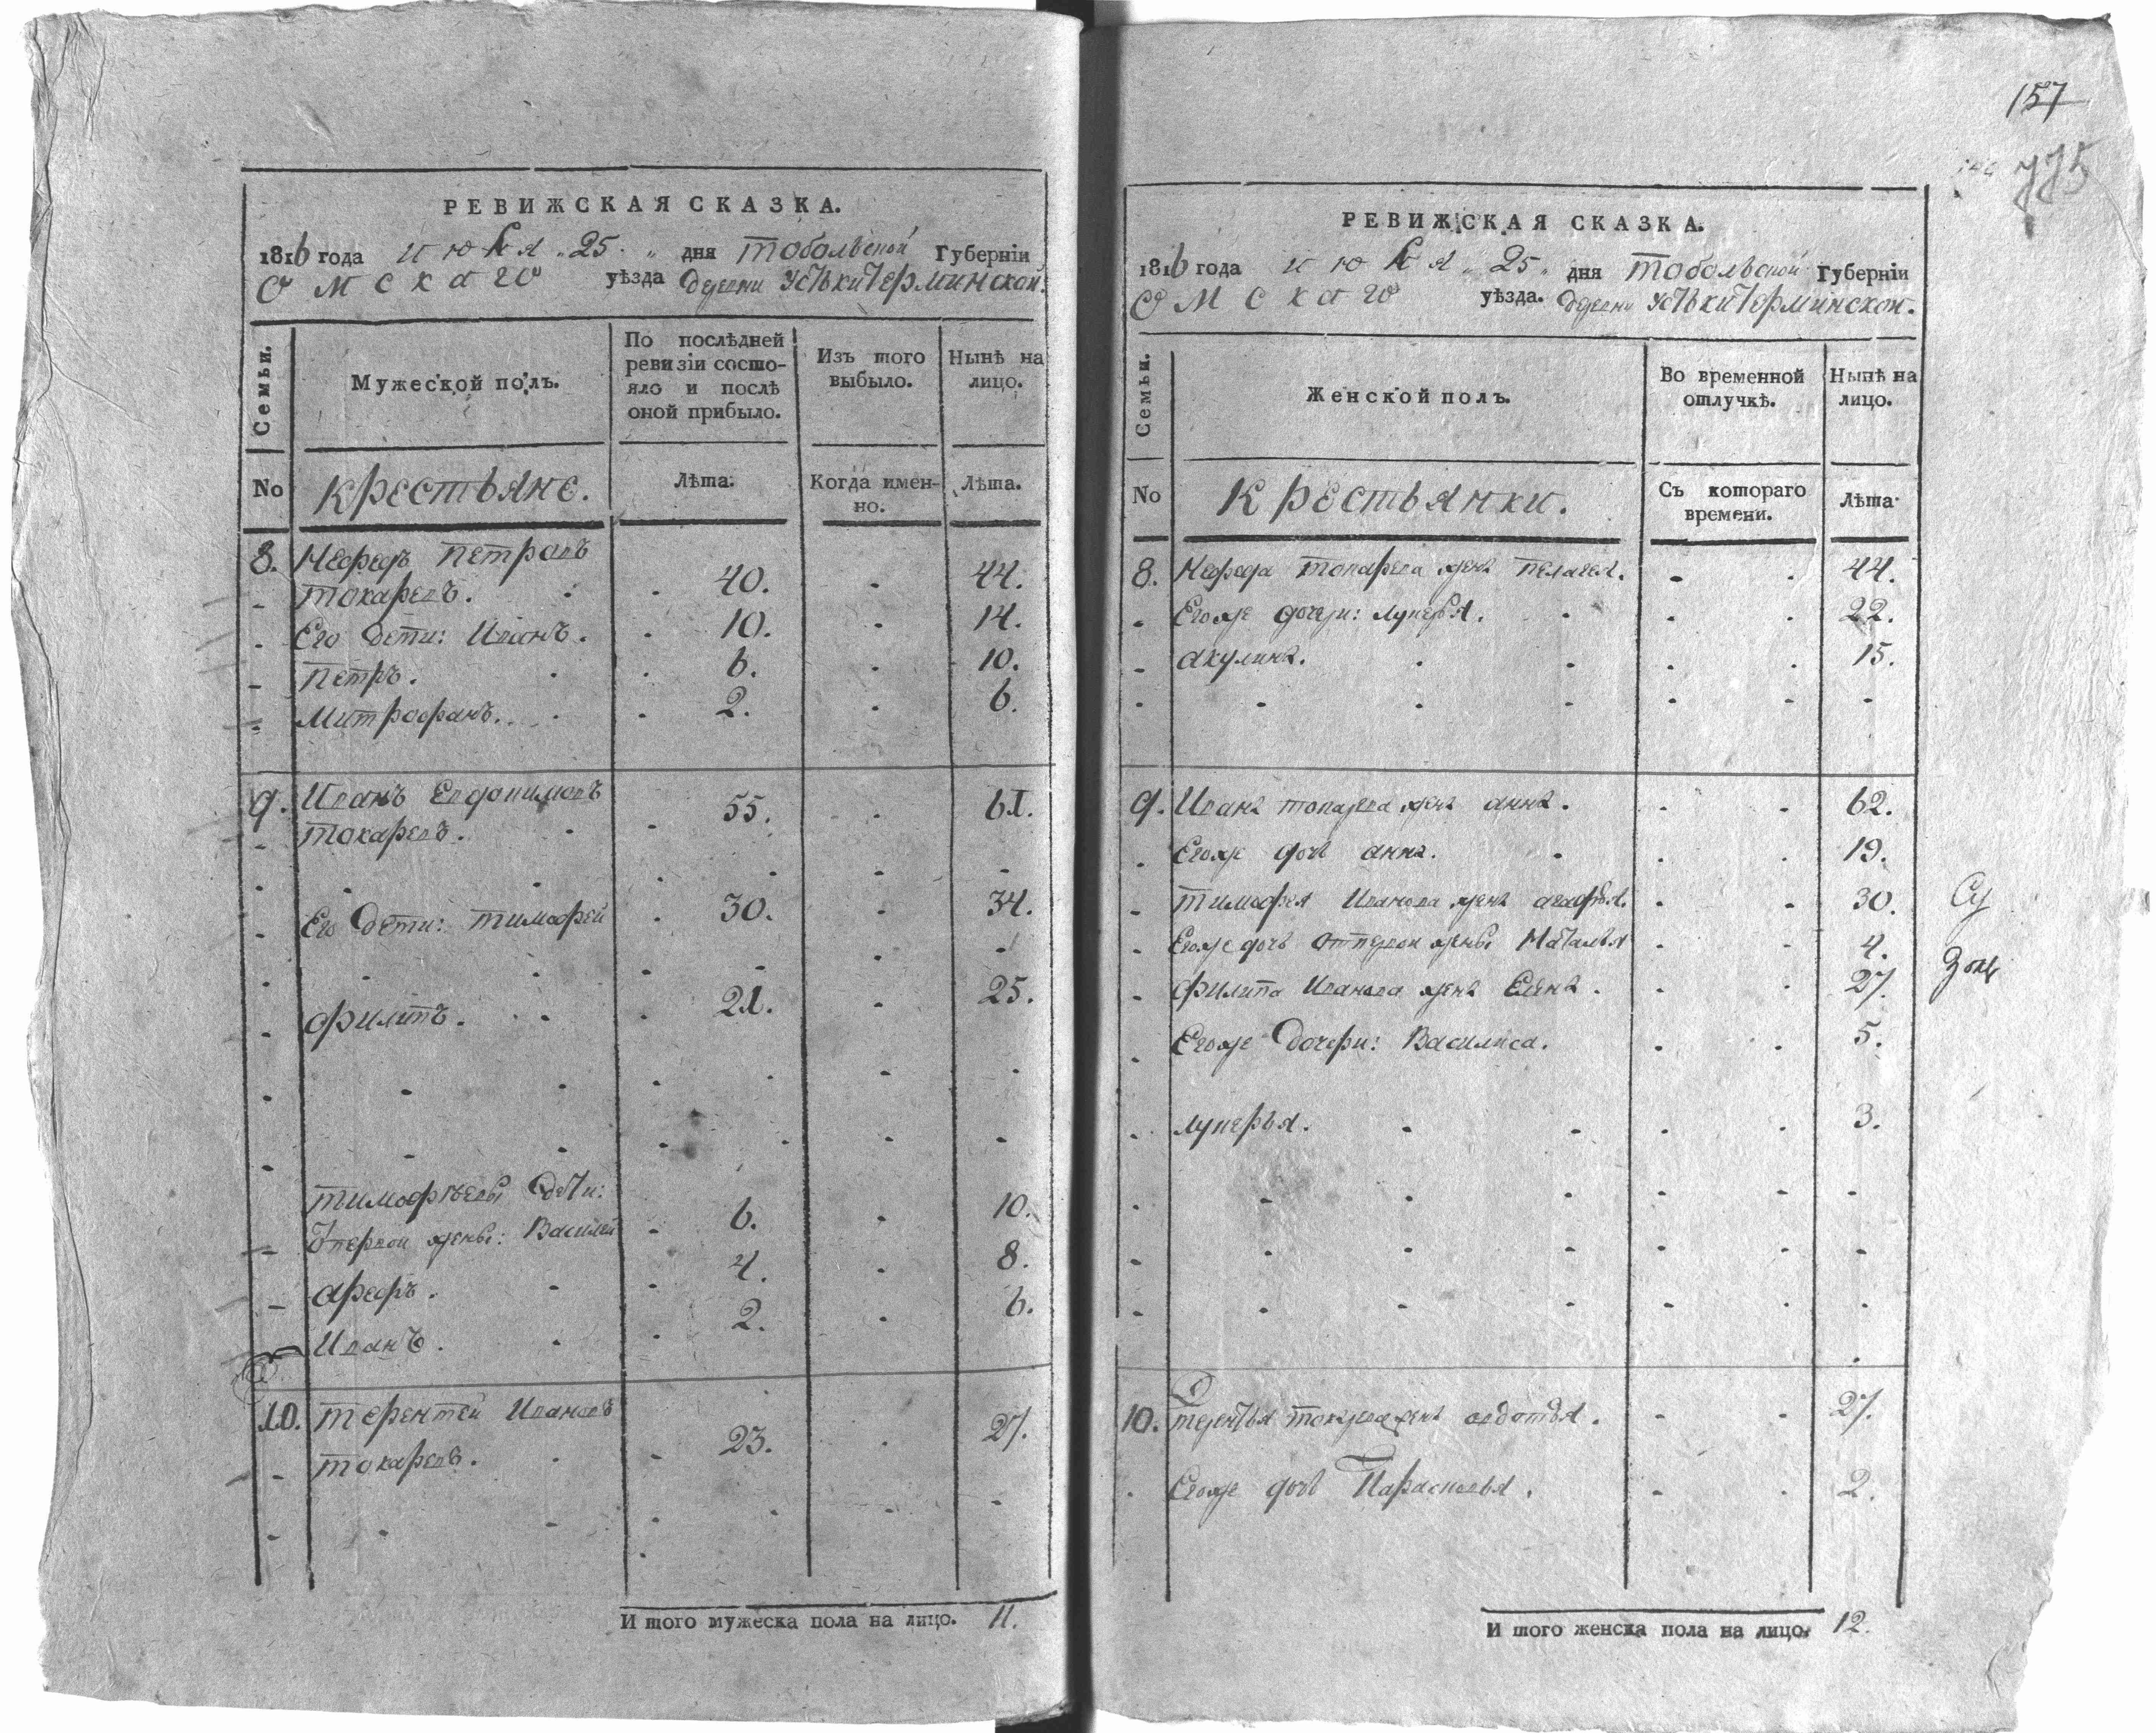 157
775
РЕВИЖСКАЯ СКАЗКА.
1816 года июля „25„ дня Тобольской Губерніи
Омскаго уѣзда деревни Устькитерминской.
Семьи.
Мужеской полъ.
По послѣдней ревизіи состояло и послѣ оной прибыло.
Изъ того выбыло.
Нынѣ на лицо.
No
Крестьяне.
Лѣта.
Когда именно.
Лѣта.
8. Нефедъ Петровъ
Токаревъ. 40. 44.
Его дети: Иванъ. 10. 14.
Петръ. 6. 10.
Митрофанъ. 2. 6.
9. Иванъ Евдокимовъ
Токаревъ. 55. 61.
Его дети: Тимофей 30. 34.
Филипъ. 21. 25.
Тимофѣевы дети:
Отпервой жены: Василей 6. 10.
Арефъ. 4. 8.
Иванъ. 2. 6.
10. Терентей Ивановъ
Токаревъ. 23. 27.
И того мужеска пола на лицо. 11.
РЕВИЖСКАЯ СКАЗКА.
1816 года июля „25„ дня Тобольской Губерніи
Омскаго уѣзда. деревни Устькитерминской.
Семьи.
Женской полъ.
Во временной отлучкѣ.
Нынѣ на лицо.
No
Крестьянки.
Съ котораго времени.
Лѣта
8. Нефеда Токарева жена Пелагея. 44.
Егоже дочери: Лукерья. 22.
Акулина. 15.
9. Ивана Токарева жена Анна. 62.
Егоже дочь Анна. 19.
Тимофея Иванова жена Агафья. 30.
Егоже дочь отпервой жены Наталья 4.
Филипа Иванова жена Елена. 27.
Егоже дочери: Василиса. 5.
Лукерья. 3.
10. Терентья Токарева жена Авдотья. 27.
Егоже дочь Парасковья. 2.
И того женска пола на лицо. 12.